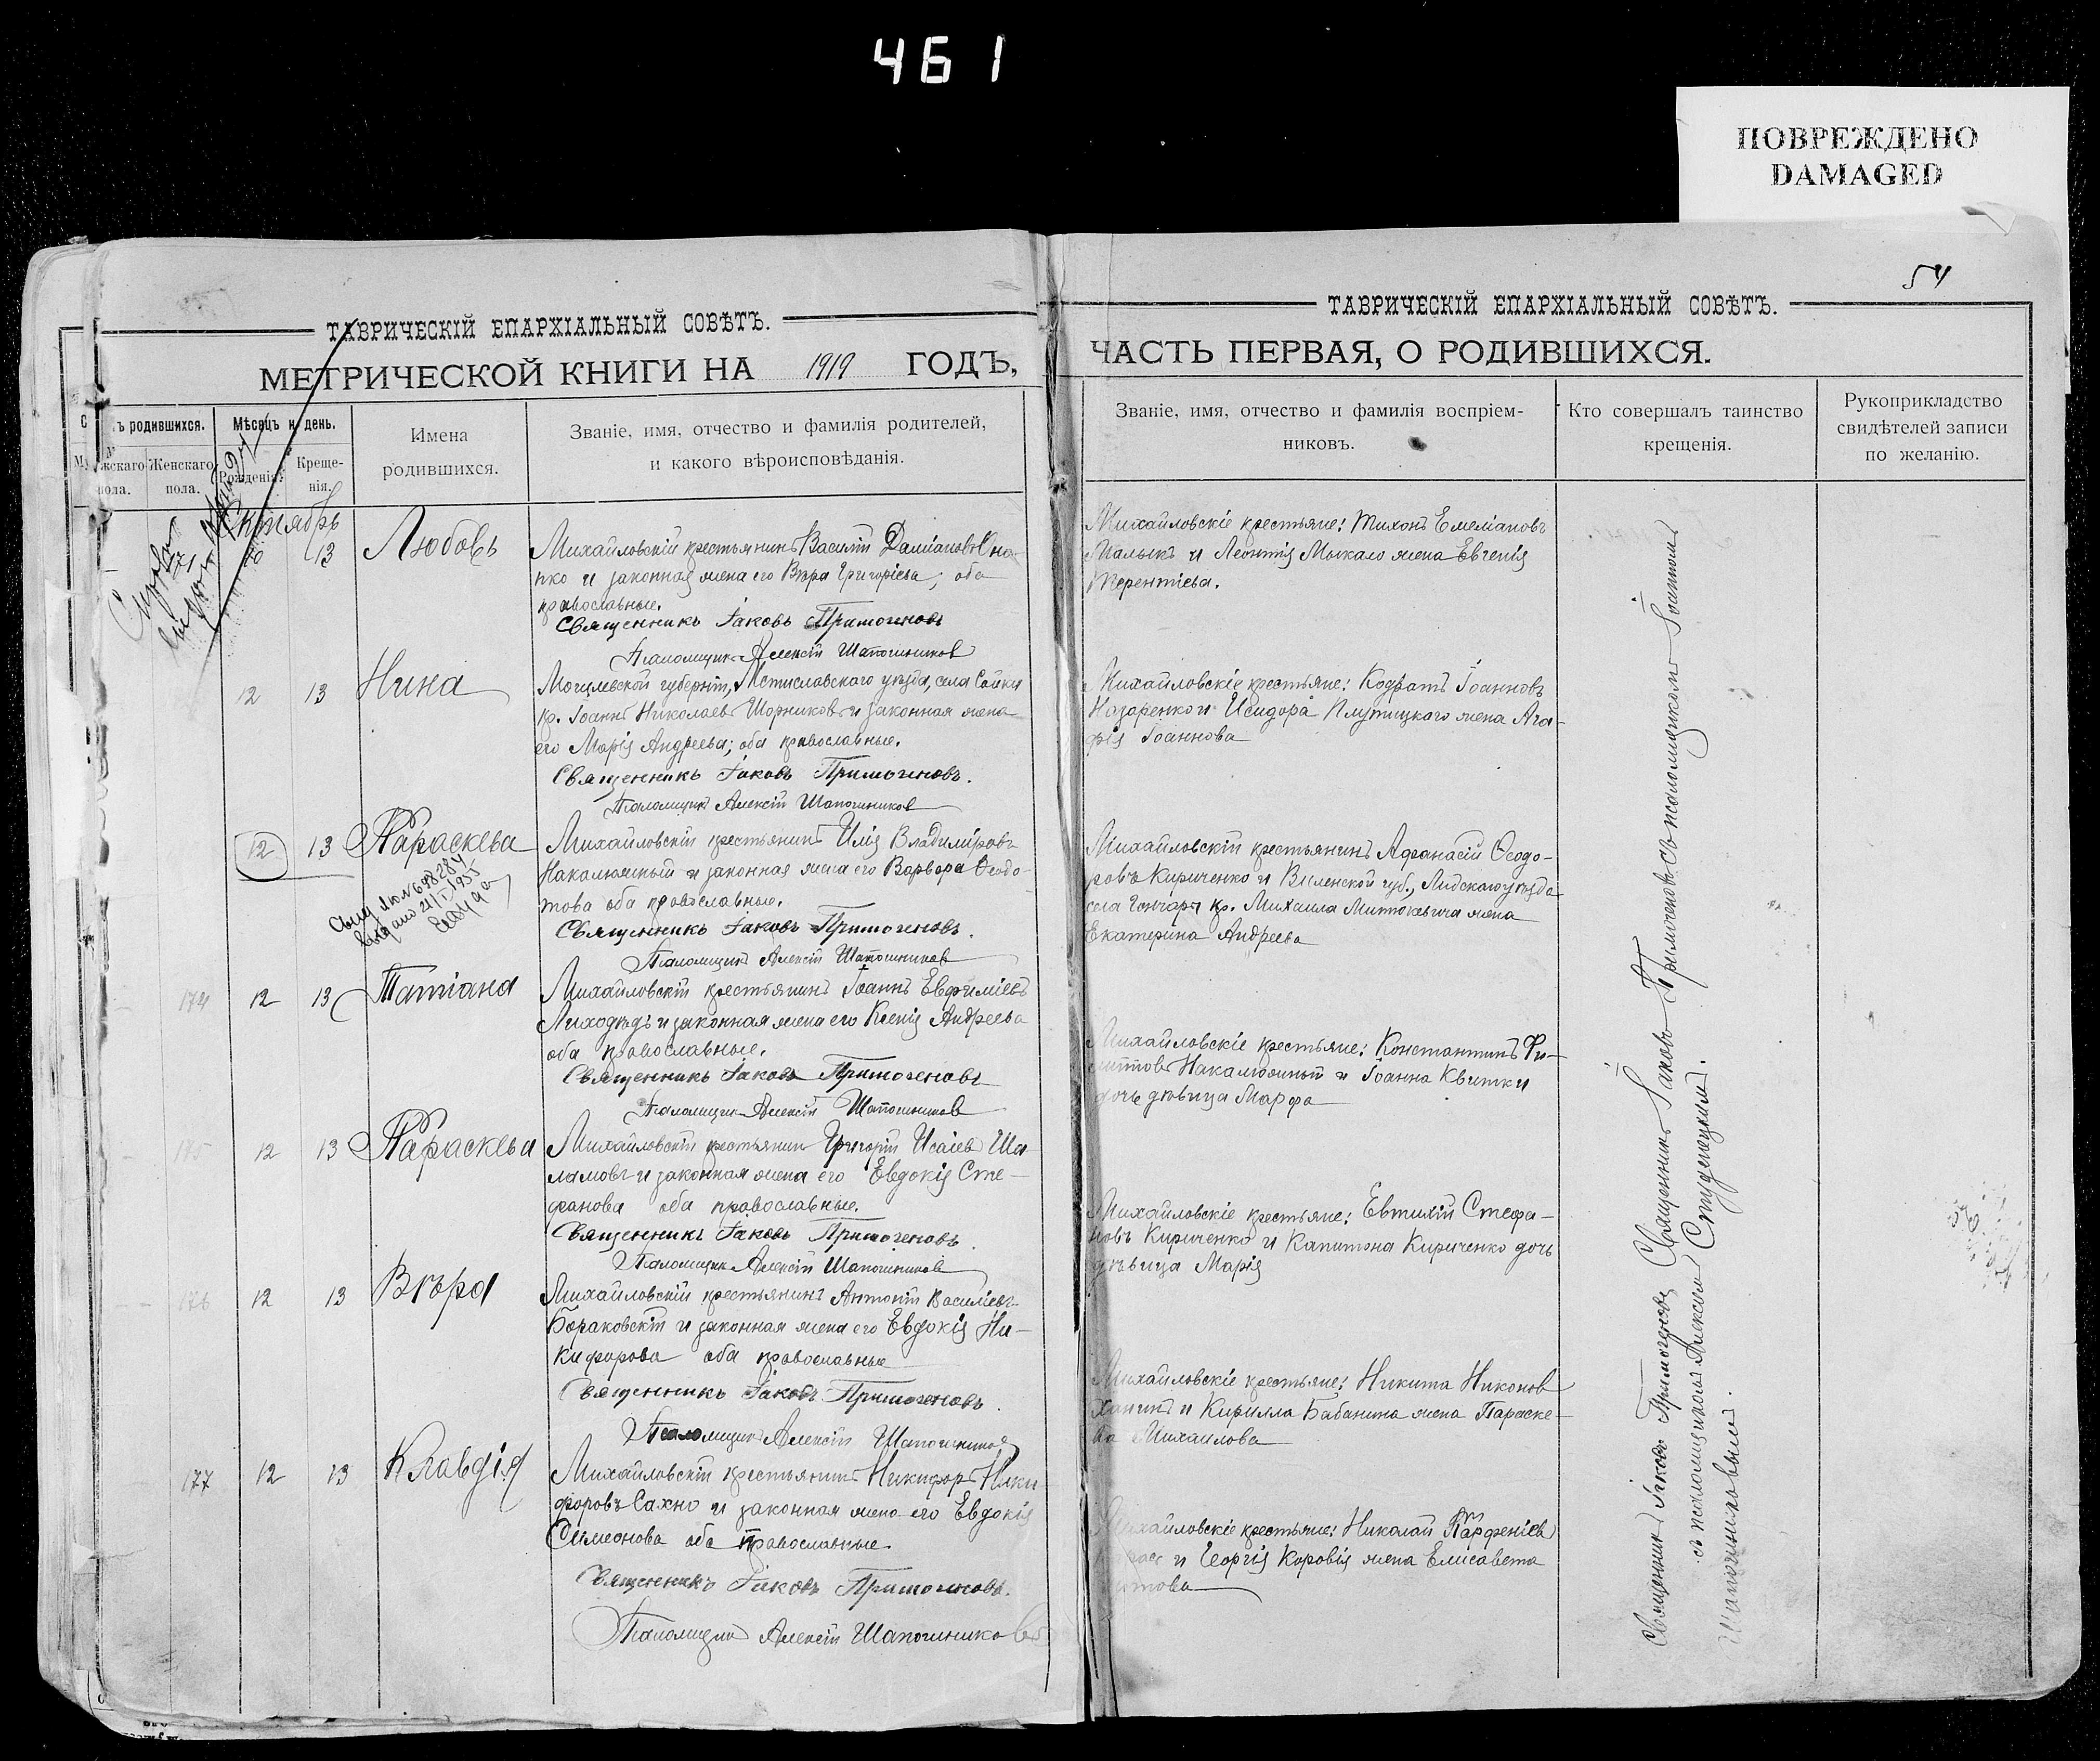 461
ПОВРЕЖДЕНО
DAMAGED
54
ТАВРИЧЕСКІЙ ЕПАРХІАЛЬНЫЙ СОВѢТЪ.
МЕТРИЧЕСКОЙ КНИГИ НА 1919 ГОДЪ,
ъ родившихся.
Мѣсяцъ и день.
Имена
родившихся.
Званіе, имя, отчество и фамилія родителей,
и какого вѣроисповѣданія.
Женскаго
пола.
Рожденія.
Креще-
нія.
Октябрь
10 13 Любовь
Михайловскій крестьянинъ Василій Даміановъ
и законная жена его Вѣра Григоріева; оба
православные.
Священникъ Іаковъ Примогеновъ
Псаломщикъ Алексій Шапошников
12 13 Нина
Могилевской губерніи, Мстиславскаго уѣзда, села
кр. Іоаннъ Николаевъ Шорниковъ и законная жена
его Марія Андреева; оба православные.
Священникъ Іаковъ Примогеновъ.
Псаломщикъ Алексій Шапошников
12 13 Параскева
выдано 21/I 1955
Михайловскій крестьянинъ Илія Владиміровъ
Накалюжный и законная жена его Варвара Ѳеодо-
това оба православные.
Священникъ Іаковъ Примогеновъ.
Псаломщикъ Алексій Шапошников
174 12 13 Татіана
Михайловскій крестьянинъ Іоаннъ Евфиміевъ
Лиходѣдъ и законная жена его Ксенія Андреева
оба православные.
Священникъ Іаковъ Примогеновъ
Псаломщикъ Алексій Шапошников
175 12 13 Параскева
Михайловскій крестьянинъ Григорій Исаіевъ Ша
ламовъ и законная жена его Евдокія Сте-
фанова оба православные.
Священникъ Іаковъ Примогеновъ
Псаломщикъ Алексій Шапошников
176 12 13 Вѣра
Михайловскій крестьянинъ Антоній Василіевъ
Бораковскій и законная жена его Евдокія Ни-
кифорова оба православные
Священникъ Іаковъ Примогеновъ.
Псаломщикъ Алексій Шапошников
177 12 13 Клавдія
Михайловскій крестьянинъ Никифоръ Ники
форовъ Сахно и законная жена его Евдокія
Симеонова оба православные.
Священникъ Іаковъ Примогеновъ.
Псаломщикъ Алексій Шапошниковъ
ТАВРИЧЕСКІЙ ЕПАРХІАЛЬНЫЙ СОВѢТЪ.
ЧАСТЬ ПЕРВАЯ, О РОДИВШИХСЯ.
Званіе, имя, отчество и фамилія воспріем-
никовъ.
Кто совершалъ таинство
крещенія.
Рукоприкладство
свидѣтелей записи
по желанію.
Михайловскіе крестьяне: Тихонъ Емеліановъ
Малыкъ и Леонтія Мыкало жена Евгенія
Терентіева.
Михайловскіе крестьяне: Кодратъ Іоанновъ
Назаренко и Исидора Плутицкаго жена Ага-
фія Іоаннова
Михайловскій крестьянинъ Афанасій Ѳеодо-
ровъ Кириченко и Виленской губ., Лидскаго уѣзда
села Гончары кр. Михаила Митюкевича жена
Екатерина Андреева
Михайловскіе крестьяне: Константинъ Фи-
липповъ Накалюжный и Іоанна Квитки
дочь дѣвица Марфа
Михайловскіе крестьяне: Евтихій Стефа-
новъ Кириченко и Капитона Кириченко дочь
дѣвица Марія
Михайловскіе крестьяне: Никита Никонов
и Кирилла Бабанина жена Параске-
ва Михаилова
Михайловскіе крестьяне: Николай Парфеніев
и Георгія Коровія жена Елисавета
Священникъ Іаковъ Примогеновъ съ псаломщикомъ Іоанномъ
Студенецкимъ.
Священникъ Іаковъ Примогеновъ
съ псаломщикомъ Алексіемъ
Шапошниковымъ.